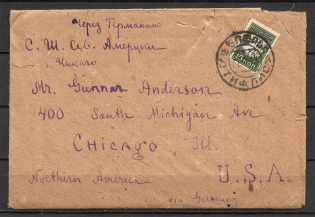 Через Германию
С. Ш. Сев. Америки
г. Чикаго
Mr. Gunnar Anderson
400 South Michigan Ave
Chicago Ill.
U.S.A.
Northern America
via Germany